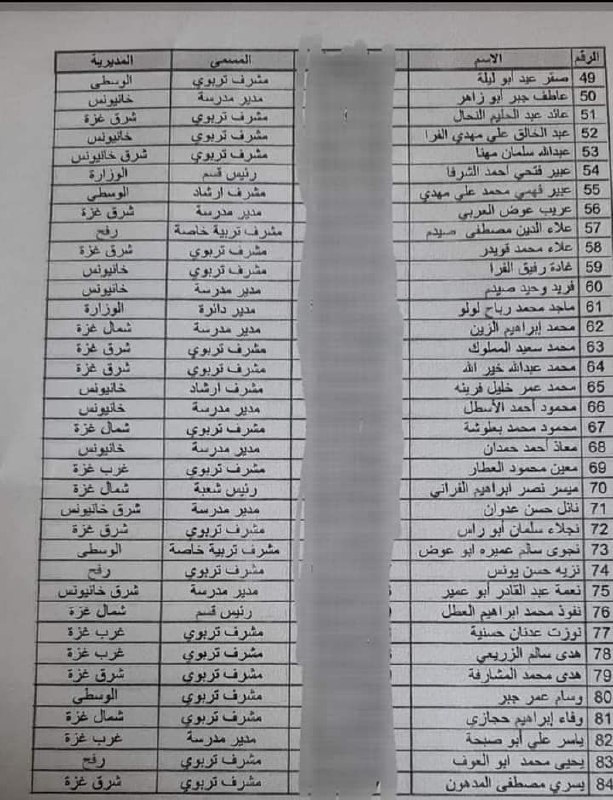 الرقم الاسم المسمى المديرية
49 صقر عبد أبو ليلة مشرف تربوي الوسطى
50 عاطف جبر أبو زاهر مدير مدرسة خانيونس
51 عائد عبد الحليم النحال مشرف تربوي شرق غزة
52 عبد الخالق علي مهدي الفرا مشرف تربوي خانيونس
53 عبدالله سلمان مهنا مشرف تربوي شرق خانيونس
54 عبير فتحي احمد الشرفا رئيس قسم الوزارة
55 عبير فهمي محمد علي مهدي مشرف ارشاد الوسطى
56 عريب عوض العربي مدير مدرسة شرق غزة
57 علاء الدين مصطفى صيدم مشرف تربية خاصة رفح
58 علاء محمد قويدر مشرف تربوي شرق غزة
59 غادة رفيق الفرا مشرف تربوي خانيونس
60 فريد وحيد صيدم مدير مدرسة خانيونس
61 ماجد محمد رباح لولو مدير دائرة الوزارة
62 محمد إبراهيم الزين مدير مدرسة شمال غزة
63 محمد سعيد المملوك مشرف تربوي شرق غزة
64 محمد عبدالله خير الله مشرف تربوي شرق غزة
65 محمد عمر خليل فرينه مشرف ارشاد خانيونس
66 محمود أحمد الأسطل مدير مدرسة خانيونس
67 محمود محمد بعلوشة مشرف تربوي شمال غزة
68 معاذ أحمد حمدان مدير مدرسة خانيونس
69 معين محمود العطار مشرف تربوي غرب غزة
70 ميسر نصر ابراهيم الفراني رئيس شعبة شمال غزة
71 نائل حسن عدوان مدير مدرسة شرق خانيونس
72 نجلاء سلمان أبو راس مشرف تربوي شرق غزة
73 نجوى سالم عميره ابو عوض مشرف تربية خاصة الوسطى
74 نزيه حسن يونس مشرف تربوي رفح
75 نعمة عبد القادر أبو عمير مدير مدرسة شرق خانيونس
76 نفوذ محمد ابراهيم العطل رئيس قسم شمال غزة
77 نوزت عدنان حسنية مشرف تربوي غرب غزة
78 هدى سالم الزريعي مشرف تربوي غرب غزة
79 هدى محمد المشارفة مشرف تربوي شرق غزة
80 وسام عمر جبر مشرف تربوي الوسطى
81 وفاء إبراهيم حجازي مشرف تربوي شمال غزة
82 ياسر علي أبو صبحة مدير مدرسة غرب غزة
83 يحيى محمد ابو العوف مشرف تربوي رفح
84 يسري مصطفى المدهون مشرف تربوي شرق غزة